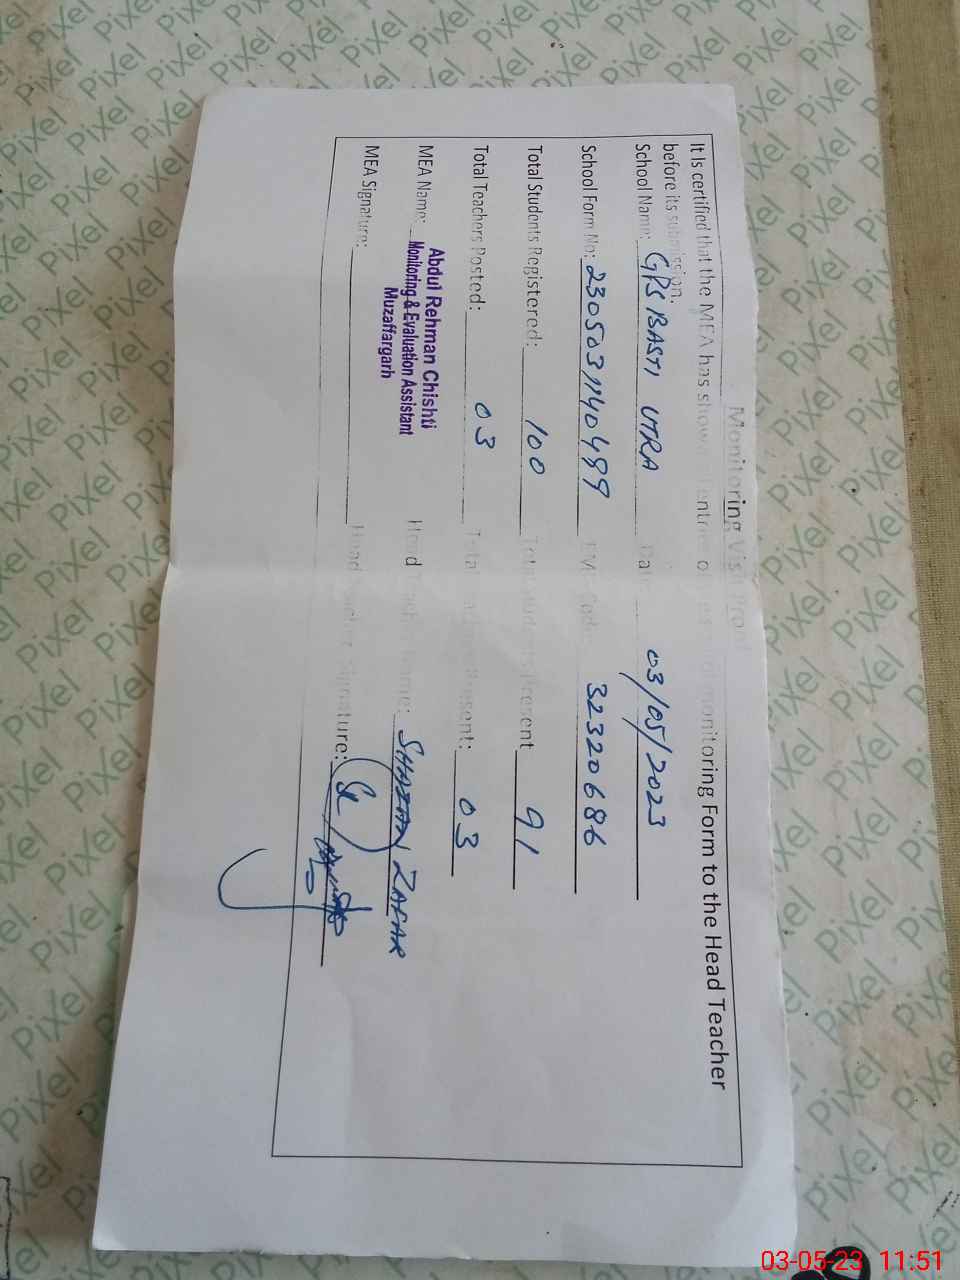 Monitoring Visit Proof
It Is certified that the MEA has shown entries of monitoring Form to the Head Teacher
before its submission.
School Name: GPS BASTI UTRA Date: 03/05/2023
School Form No: 2305031140499 EMIS Code: 32320686
Total Students Registered: 100 Total Students Present 91
Total Teachers Posted: 03 Total Teachers Present: 03
MEA Name: Abdul Rehman Chishti Head Teacher Name: ZAFAR
Monitoring & Evaluation Assistant
Muzaffargarh
MEA Signature: Head Teacher Signature:
Pixel
03-05-23 11:51